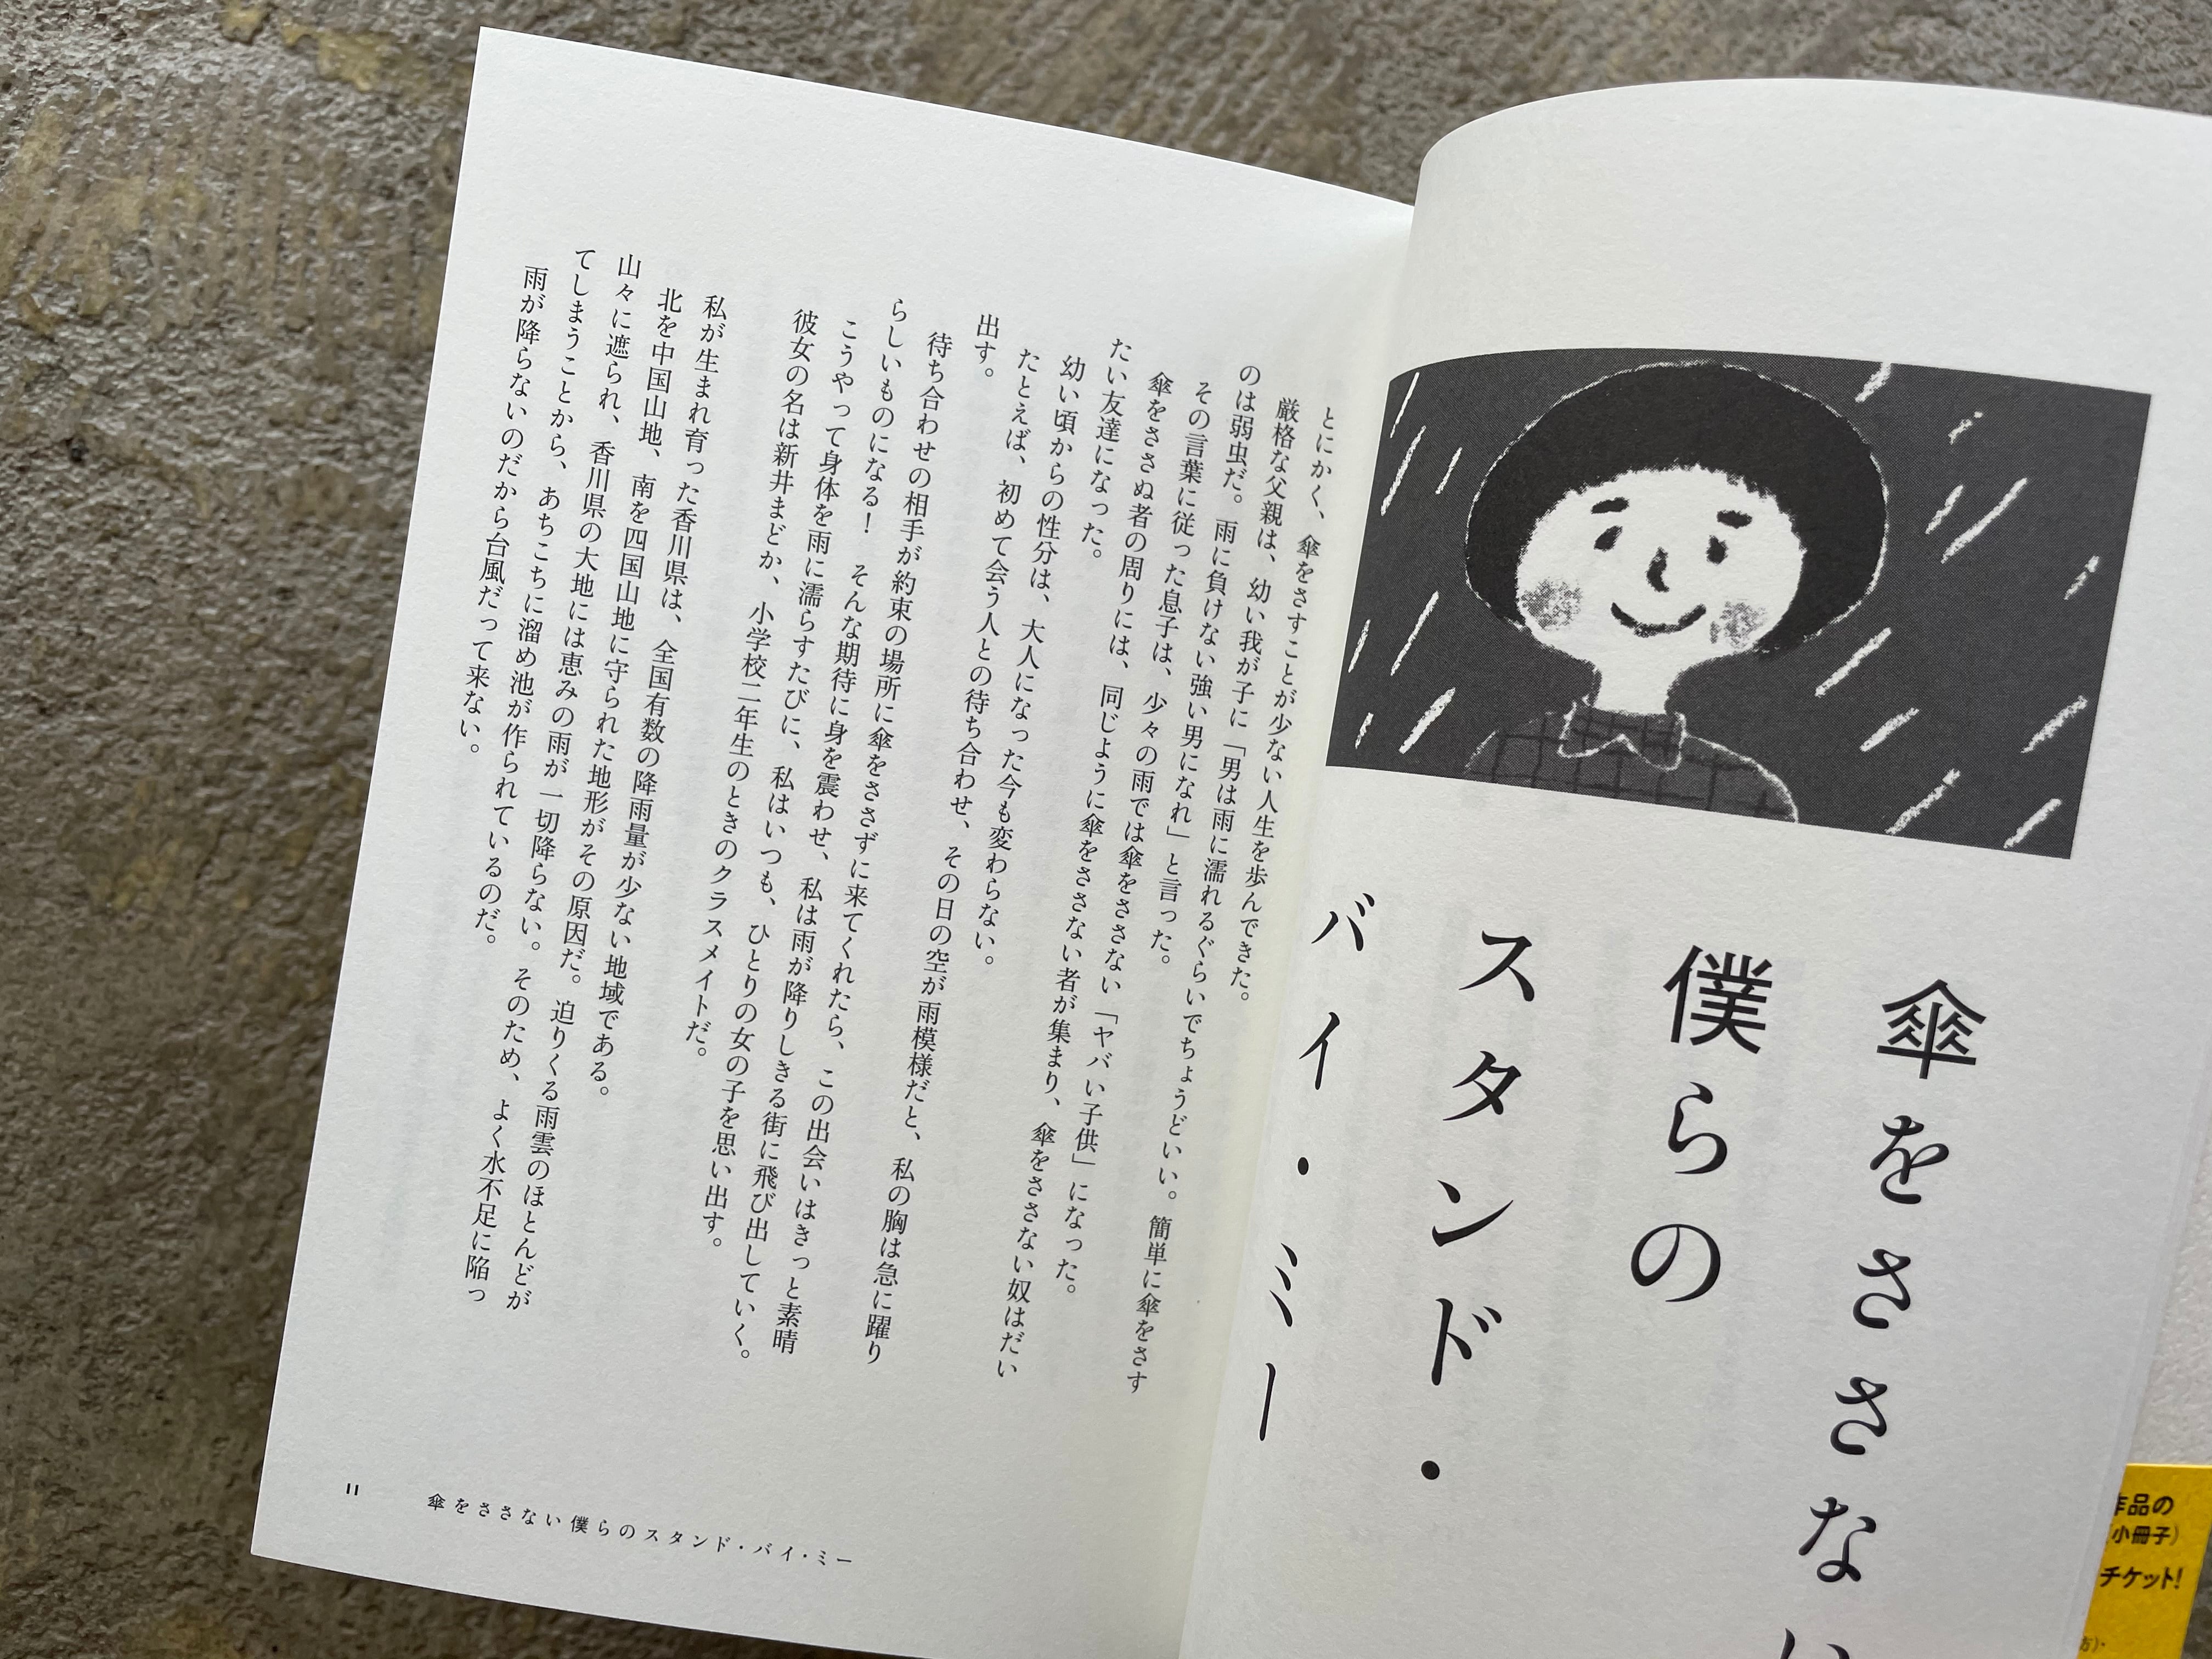 傘をささない
僕らの
スタンド・
バイ・ミー
とにかく、傘をさすことが少ない人生を歩んできた。
厳格な父親は、幼い我が子に「男は雨に濡れるぐらいでちょうどいい。簡単に傘をさす
のは弱虫だ。雨に負けない強い男になれ」と言った。
その言葉に従った息子は、少々の雨では傘をささない「ヤバい子供」になった。
傘をささぬ者の周りには、同じように傘をささない者が集まり、傘をささない奴はだい
たい友達になった。
幼い頃からの性分は、大人になった今も変わらない。
たとえば、初めて会う人との待ち合わせ、その日の空が雨模様だと、私の胸は急に躍り
出す。
待ち合わせの相手が約束の場所に傘をささずに来てくれたら、この出会いはきっと素晴
らしいものになる！　そんな期待に身を震わせ、私は雨が降りしきる街に飛び出していく。
こうやって身体を雨に濡らすたびに、私はいつも、ひとりの女の子を思い出す。
彼女の名は新井まどか、小学校二年生のときのクラスメイトだ。
私が生まれ育った香川県は、全国有数の降雨量が少ない地域である。
北を中国山地、南を四国山地に守られた地形がその原因だ。迫りくる雨雲のほとんどが
山々に遮られ、香川県の大地には恵みの雨が一切降らない。そのため、よく水不足に陥っ
てしまうことから、あちこちに溜め池が作られているのだ。
雨が降らないのだから台風だって来ない。
11
傘をささない僕らのスタンド・バイ・ミー
作品の
小冊子）
チケット！